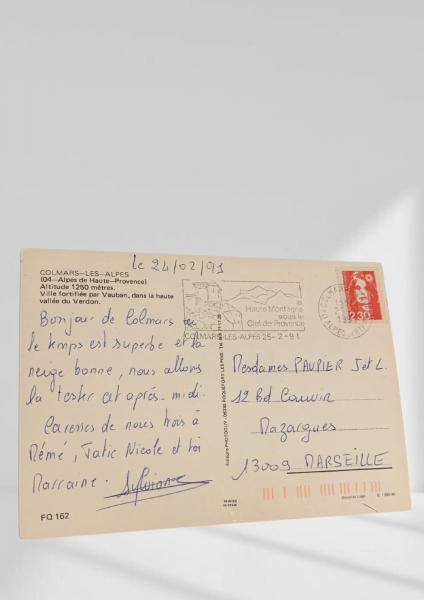 le 24/02/91
COLMARS-LES-ALPES
(04-Alpes de Haute-Provence)
Altitude 1250 mètres.
Ville fortifiée par Vauban, dans la haute
vallée du Verdon.
Bonjour de Colmars où
le temps est superbe et la
neige bonne, nous allons
la tester cet après-midi.
Caresses de nous trois à
Mémé, Tatie Nicole et toi
Marraine. Sylviane
FQ 162
Haute Montagne
sous le
Ciel de Provence
COLMARS-LES-ALPES 25-2-91
2,30
Mesdames PAUPIER J et L.
12 Bd Cauvin
Mazargues
13009 MARSEILLE